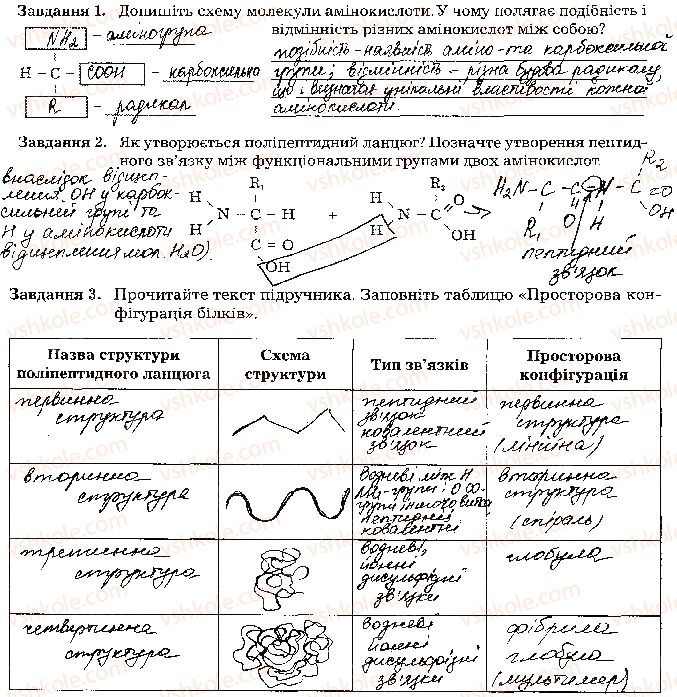 Завдання 1. Допишіть схему молекули амінокислоти. У чому полягає подібність і
відмінність різних амінокислот між собою?
NH2 - аміногрупа
H - C - COOH - карбоксильна
R - радикал
подібність - наявність аміно- та карбоксильної
групи; відмінність - різна будва радикалу,
що і визначає унікальні властивості кожної
амінокислоти.
Завдання 2. Як утворюється поліпептидний ланцюг? Позначте утворення пептид-
ного зв'язку між функціональними групами двох амінокислот.
внаслідок відщеп-
лення OH у карбок-
сильній групі та
H у амінокислоти
відщеплення мол. H2O).
H R1 H R2 O
N - C - H + N - C
H C = O H OH
OH
H2N - C - C - N - C = O
R2
R1 O H OH
пептидний
зв'язок
Завдання 3. Прочитайте текст підручника. Заповніть таблицю «Просторова кон-
фігурація білків».
Назва структури
поліпептидного ланцюга
Схема
структури
Тип зв'язків
Просторова
конфігурація
первинна
структура
пептидний
зв'язок
ковалентний
зв'язок
первинна
структура
(лінійна)
вторинна
структура
водневі між H
NH-групи і O CO-
групи
пептидний
ковалентні
вторинна
структура
(спіраль)
третинна
структура
водневі,
йонні
дисульфідні
зв'язки
глобула
четвертинна
структура
водневі
йонні
дисульфідні
зв'язки
фібрили
глобула
(мультимер)
vshkole.com